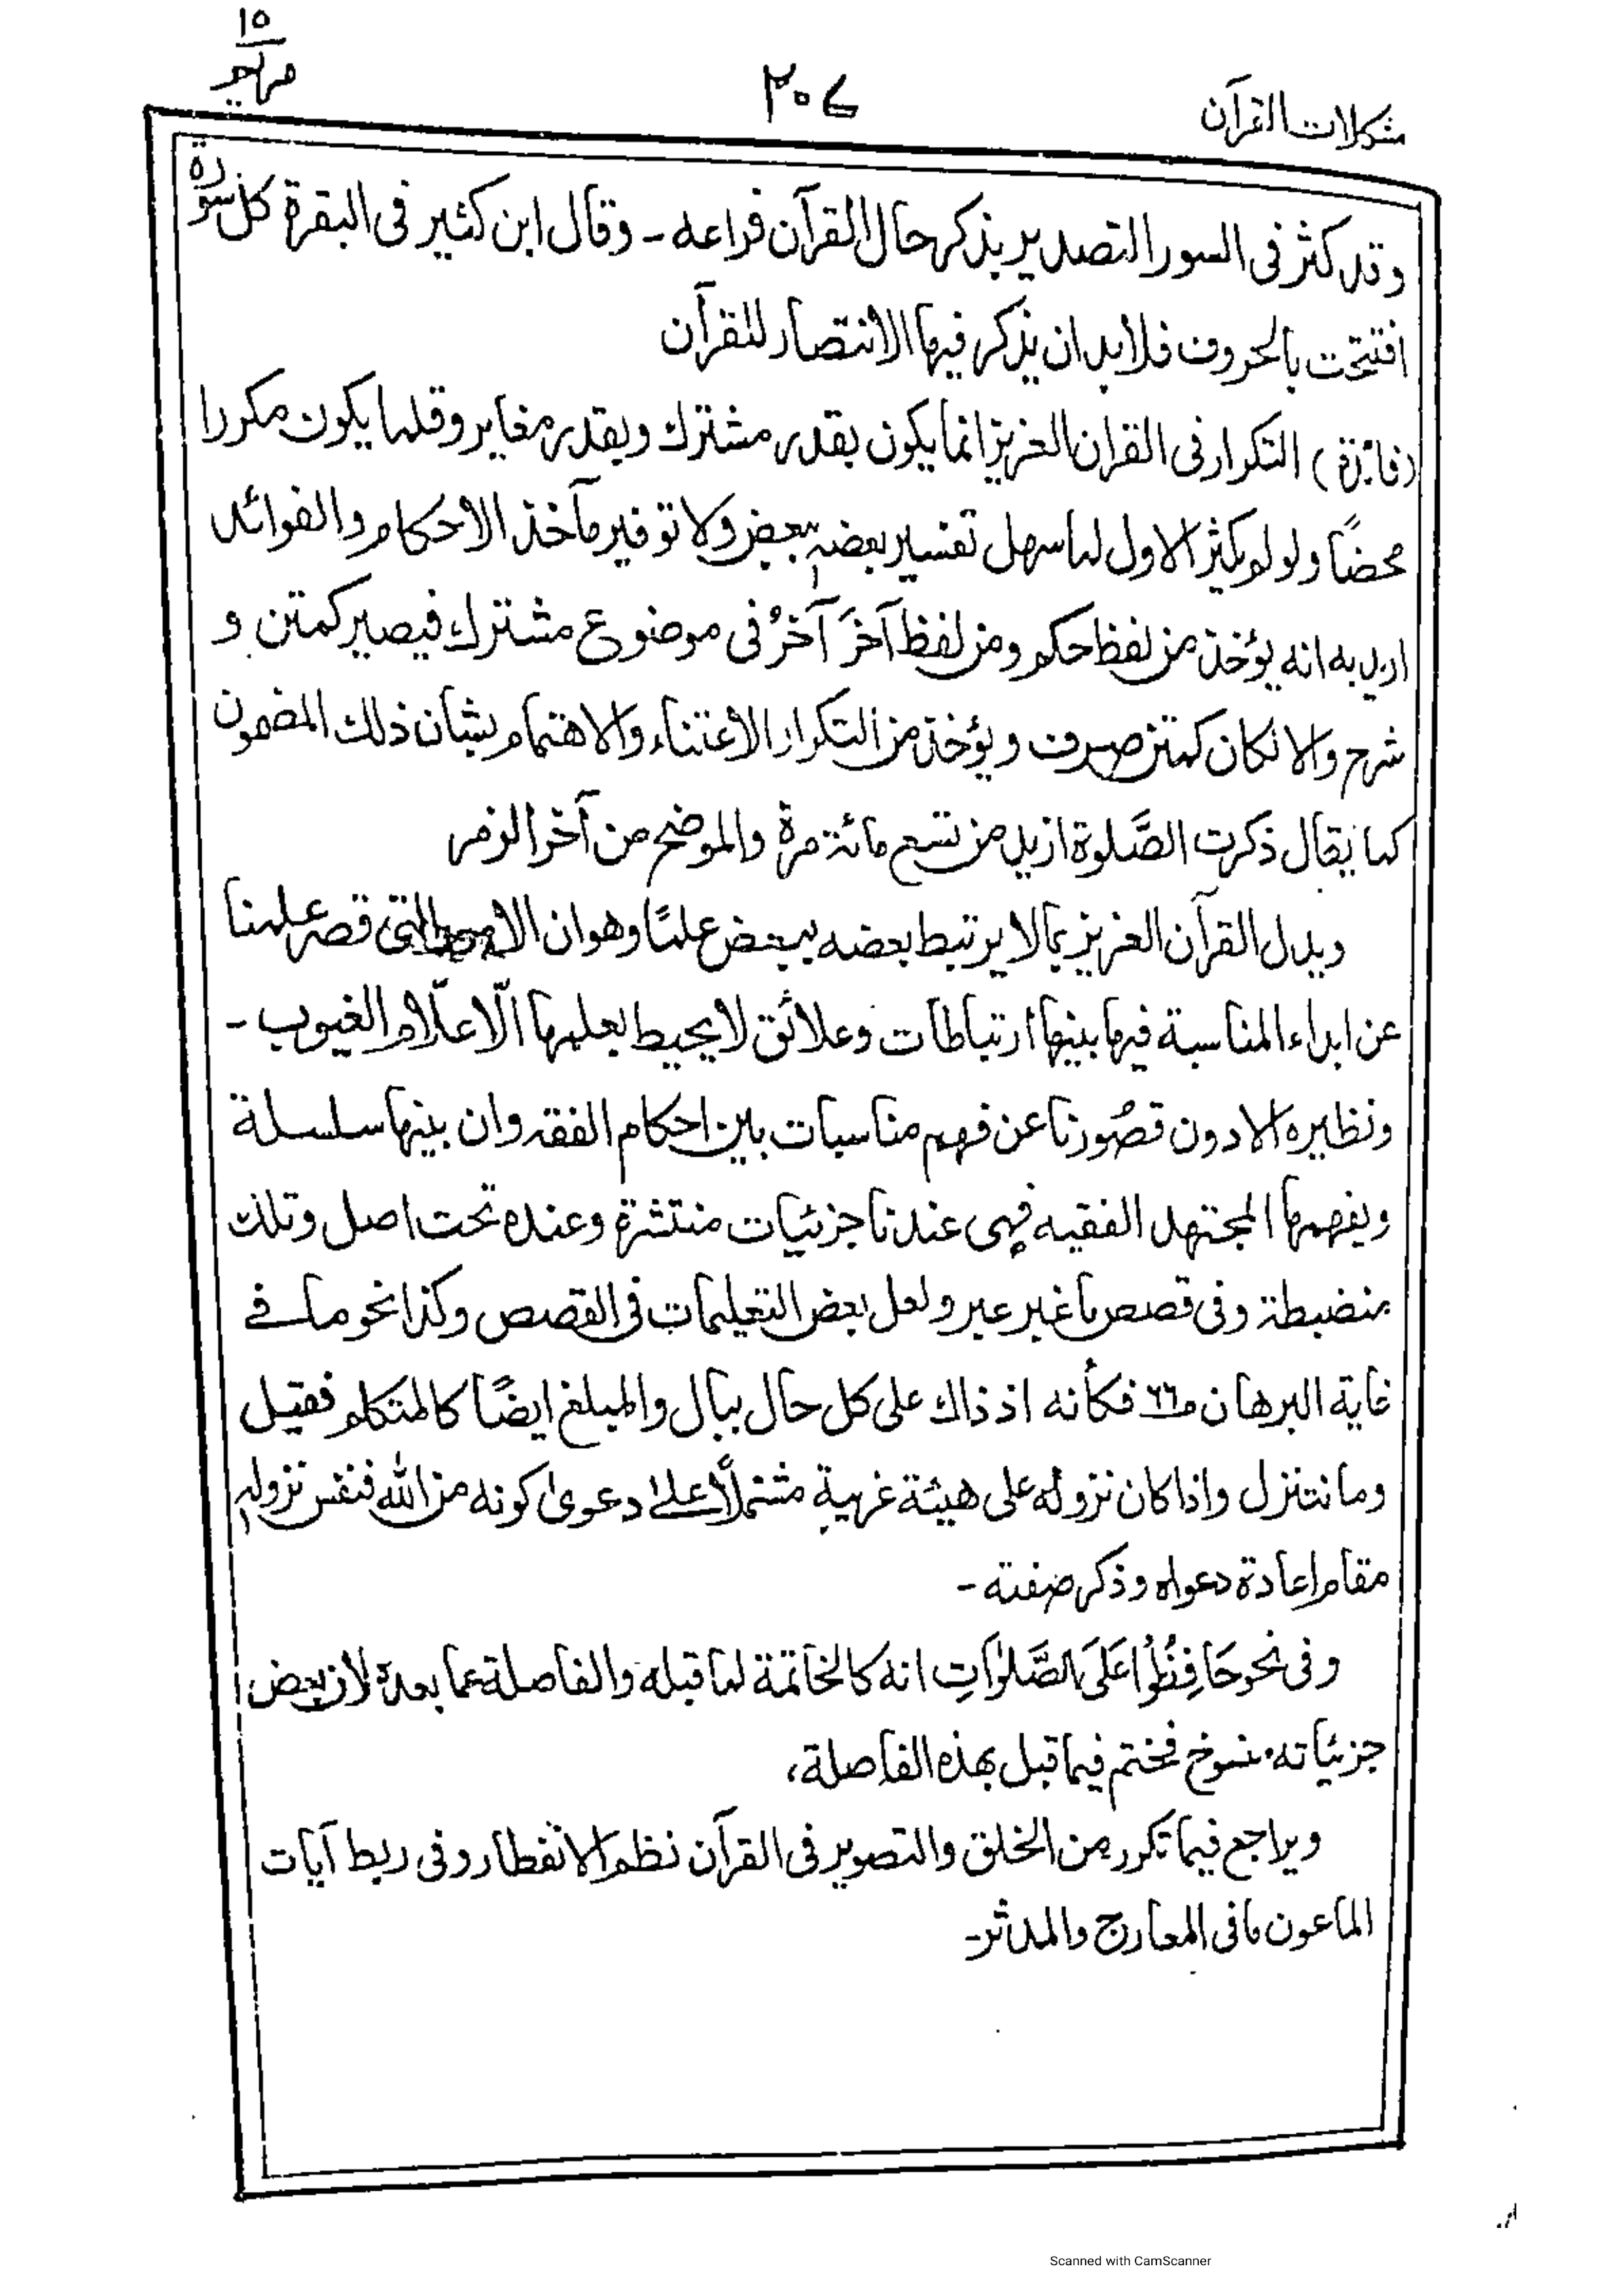 ١٥
مشكلات القرآن
٢٠٤
وقد كثر فى السور التصدير بذكر حال القرآن فراعه - وقال ابن كثير فى البقرة كل سورة
افتتحت بالحروف فلابد ان يذكر فيها الانتصار للقرآن
(فائدة) التكرار فى القران العزيز انما يكون بقدر مشترك وبقدر مغاير وقلما يكون مكررا
محضًا ولو لم يكثر الاول لما سهل تفسير بعضه ببعض ولا توفير مآخذ الاحكام والفوائد
اريد به انه يؤخذ من لفظ حكم ومن لفظ آخَرَ آخَرُ فى موضوع مشترك فيصير كمتن و
شرح والا لكان كمتن صرف ويؤخذ من التكرار الاعتناء والاهتمام بشان ذلك المضمون
كما يقال ذكرت الصَّلوة ازيد من تسع مائة مرة والموضح من آخر الزمر
ويدل القرآن العزيز بما لا يرتبط بعضه ببعض علمًا وهو ان الامور التى قصر علمنا
عن ابداء المناسبة فيها بينها ارتباطات وعلائق لا يحيط بعلمها الّا علّام الغيوب -
ونظيره الادون قصُورنا عن فهم مناسبات بين احكام الفقه وان بينها سلسلة
ويفهمها المجتهد الفقيه فهى عندنا جزئيات منتشرة وعنده تحت اصل وتلك
منضبطة وفى قصص ما غبر عبر ولعل بعض التعليمات فى القصص وكذا نحو ما فے
غاية البرهان م٦٦ فكأنه اذ ذاك على كل حال ببال والمبلغ ايضًا كالمتكلم فقيل
وما نتنزل واذا كان نزوله على هيئة غريبة مشتملًا علىٰ دعوىٰ كونه من الله فنفس نزوله
مقام اعادة دعواه وذكر صفته -
وفى نحو حَافِظُوْا عَلَى الصَّلَوٰاتِ انه كالخاتمة لما قبله والفاصلة عما بعده لان بعض
جزئياته منسوخ فختم فيما قبل بهذه الفاصلة،
ويراجع فيما تكرر من الخلق والتصوير فى القرآن نظم الانفطار وفى ربط آيات
الماعون ما فى المعارج والمدثر-
Scanned with CamScanner